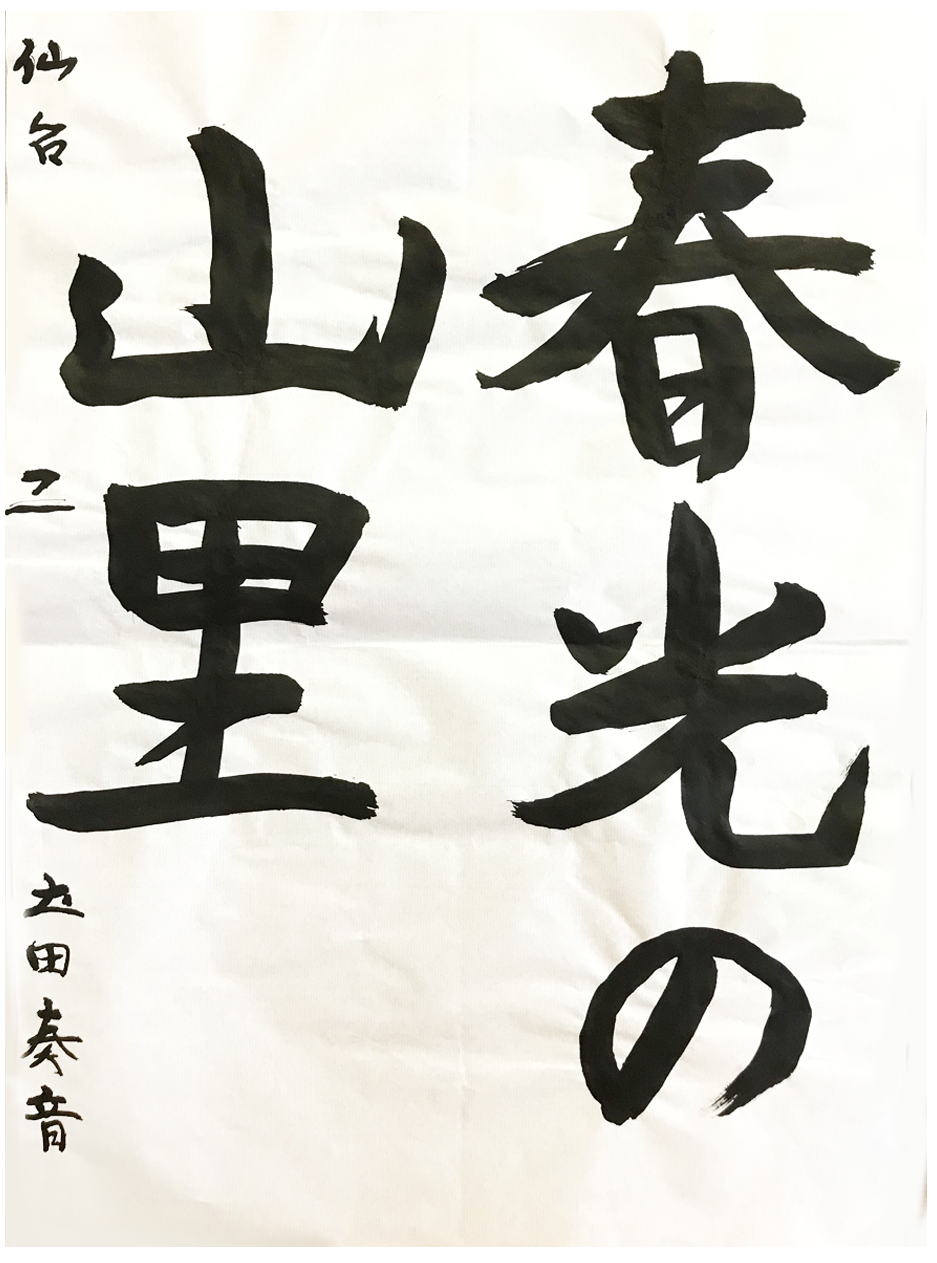 春光の
山里
仙台 二 土田奏音